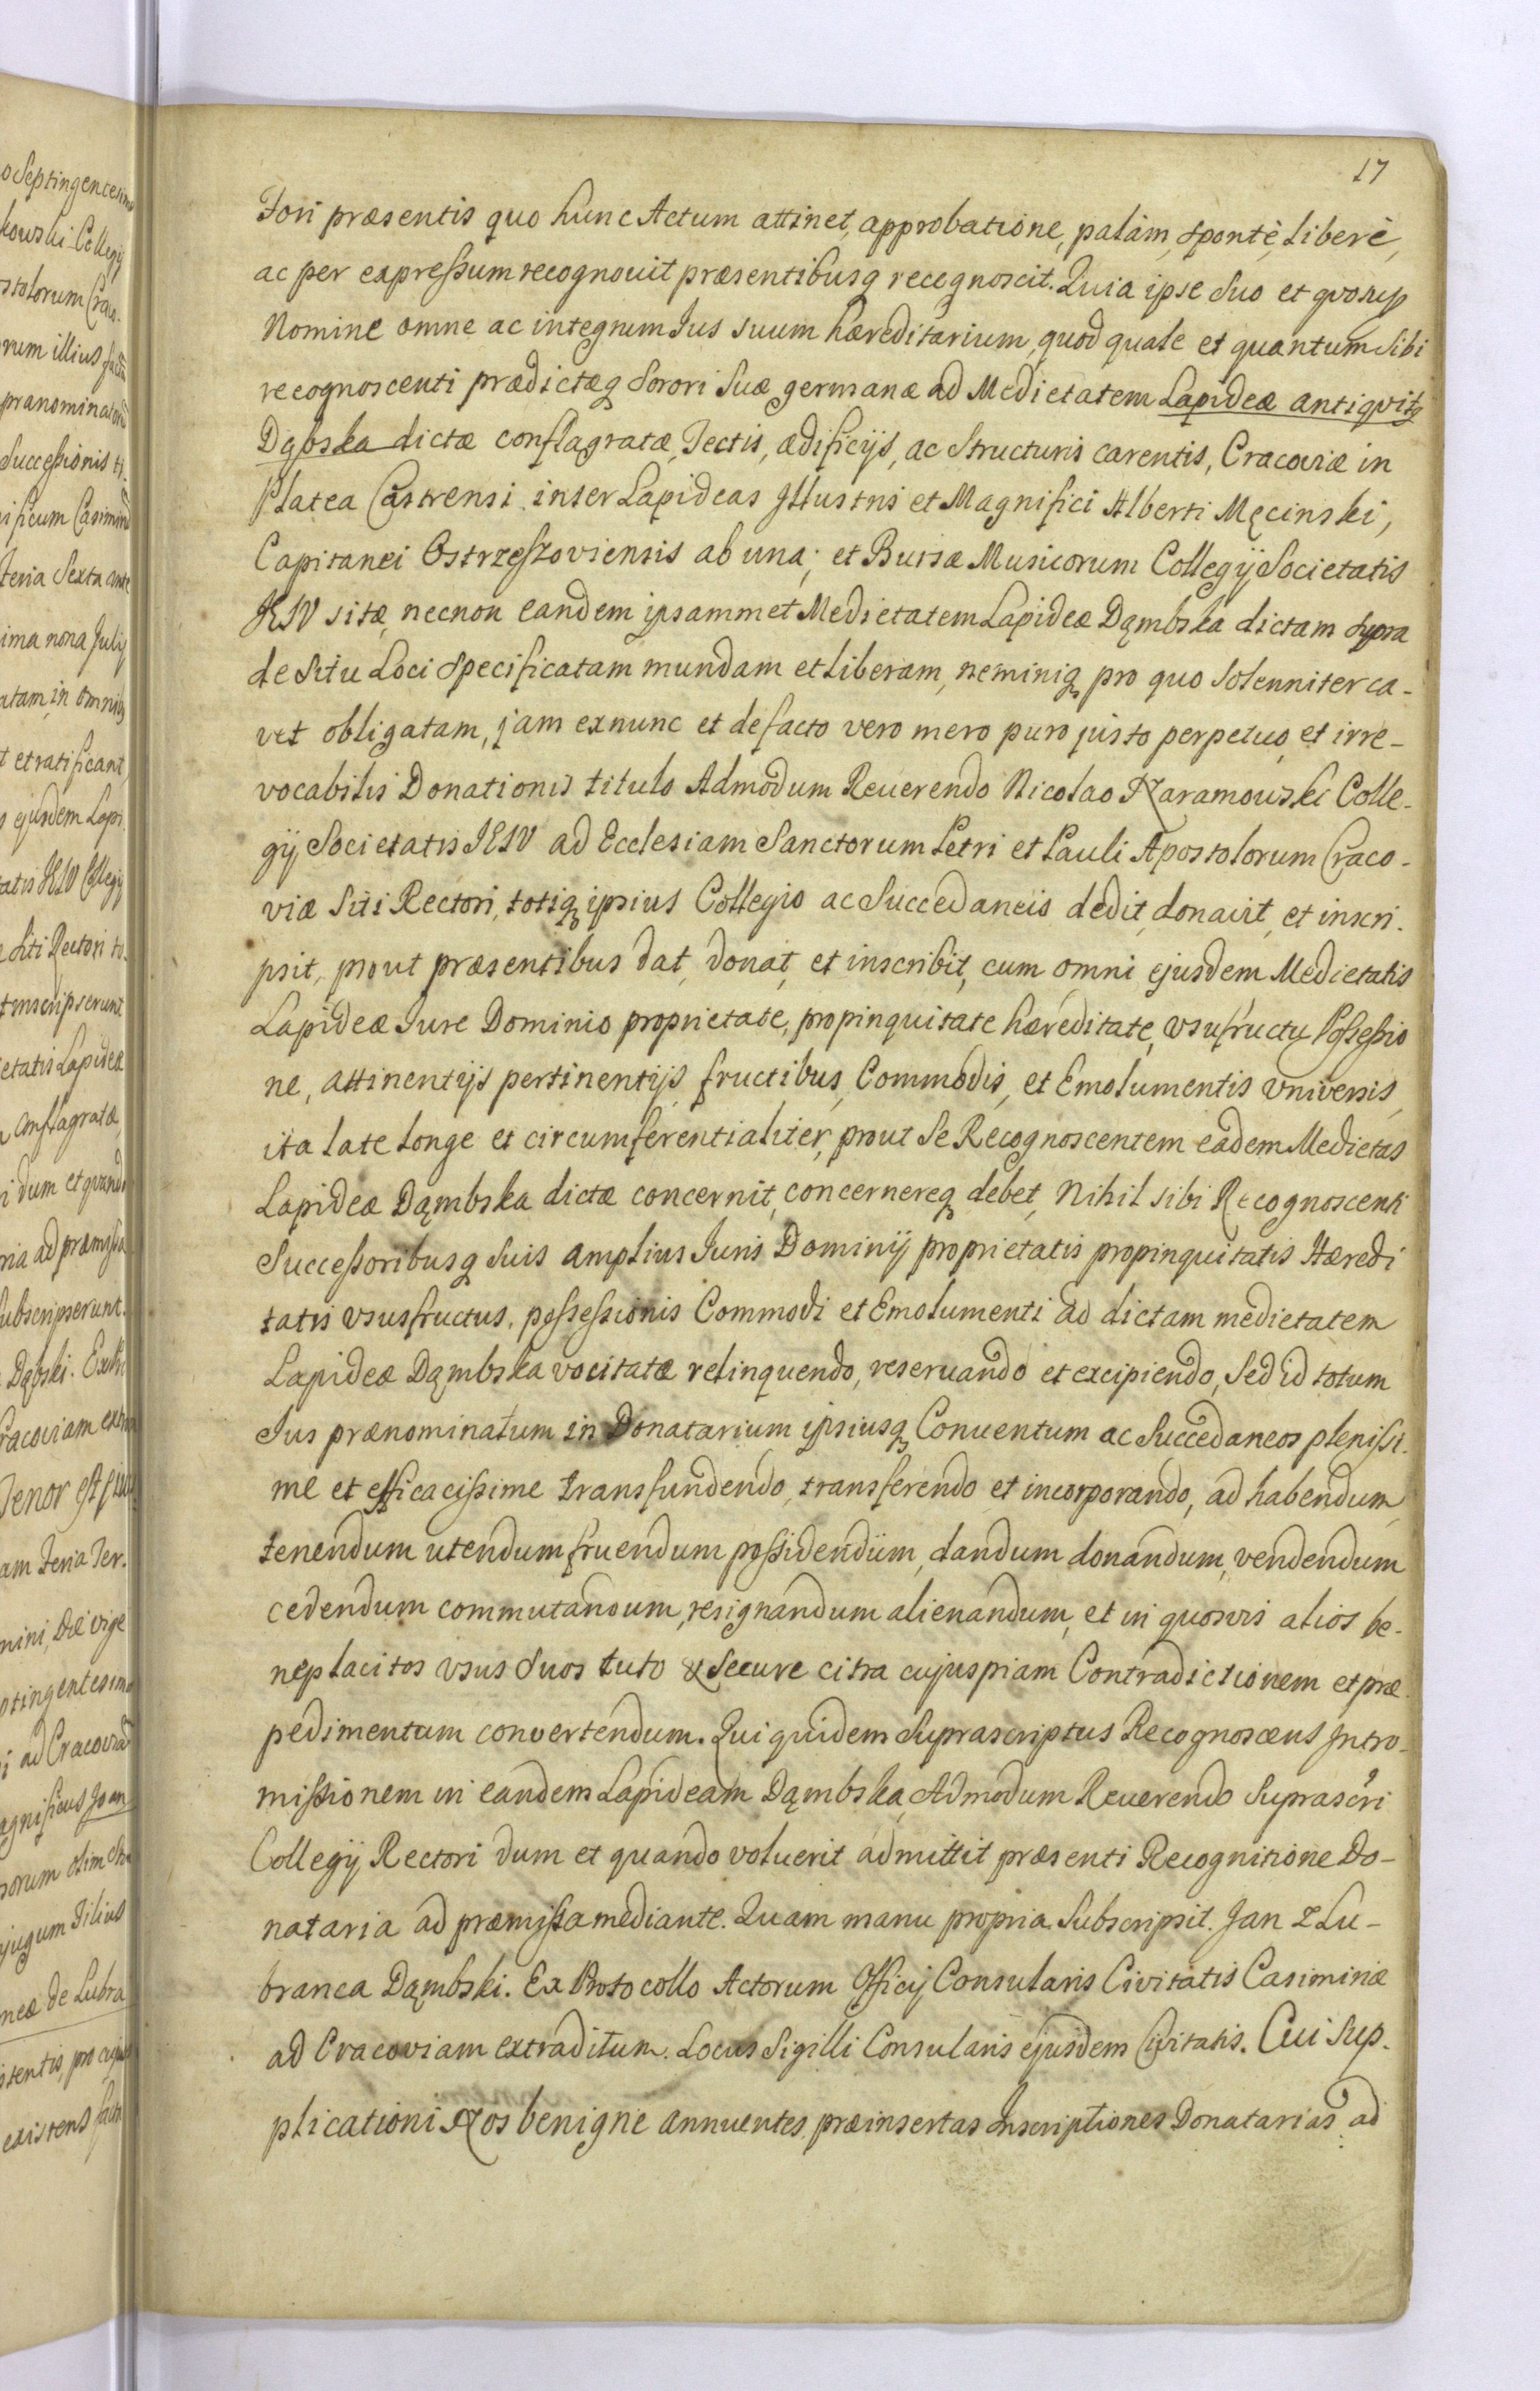 17
o Septingentesimo
kowski Collegij
stolorum Crac.
rum illius
prænominatorū
Successionis
ificum Casimirū
Feria Sexta ante
ima nona Julij
atam, in omnibȝ
t et ratificant,
s ejusdem Lapi.
tatis JESV Collegij
Siti Rectori to.
t inscripserunt
etatis Lapideæ
conflagratæ,
i dum et quando
ria ad præmissa
Subscripserunt.
Dąbski. Ex
racoviam extra
Tenor est
am Feria Ter.
mini, Die vige
ptingentesimo
i ad Cracoviā
agnificus Joan
rorum olim
njugum Filius
neæ de Lubra
istentis, pro cujus
existens
Fori præsentis quo hunc Actum attinet, approbatione, palàm, spontè, liberè,
ac per expreßum recognouit præsentibusq recognoscit. Quia ipse Suo et quorup
Nomine omne ac integrum Ius suum hæreditarium, quod quale et quantum Sibi
recognoscenti prædictæq Sorori Suæ germanæ ad Medietatem Lapideæ antiquitq
Dąbska dictæ conflagratæ, Tectis, ædificijs, ac Structuris carentis, Cracoviæ in
Platea Castrensi inter Lapideas Illustris et Magnifici Alberti Męcinski,
Capitanei Ostrzeßoviensis ab una; et Bursæ Musicorum Collegij Societatis
JESV sitæ, necnon eandem ipsammet Medietatem Lapideæ Dąmbska dictam supra
de Situ Loci Specificatam mundam et liberam, neminiq pro quo Solenniter ca-
vet obligatam, jam exnunc et defacto vero mero puro justo perpetuo, et irre-
vocabilis Donationis titulo Admodum Reuerendo Nicolao Naramowski Colle-
gij Societatis JESV ad Ecclesiam Sanctorum Petri et Pauli Apostolorum Craco-
viæ Siti Rectori, totiq ipsius Collegio ac Succedaneis dedit, donavit, et inscri-
psit, prout præsentibus dat, donat, et inscribit, cum omni ejusdem Medietatis
Lapideæ Iure Dominio proprietate, propinquitate hæreditate, vsufructu Poßeßio
ne, attinentijs pertinentijs, fructibus, Commodis, et Emolumentis vniversis,
ita late longe et circumferentialiter, prout Se Recognoscentem eadem Medietas
Lapideæ Dąmbska dictæ concernit, concernereq debet, Nihil sibi Recognoscenti
Succeßoribusq Suis amplius Iuris Dominij proprietatis propinquitatis Hæredi
tatis vsusfructus, poßeßionis Commodi et Emolumenti ad dictam medietatem
Lapideæ Dąmbska vocitatæ relinquendo, reseruando et excipiendo, Sed id totum
Ius prænominatum in Donatarium ipsiusq Conuentum ac Succedaneos plenißi.
me et efficacißime transfundendo, transferendo et incorporando, ad habendum
tenendum utendum fruendum poßidendum, dandum donandum, vendendum
cedendum commutandum, resignandum alienandum, et in quosvis alios be-
neplacitos vsus Suos tuto & Secure citra cujuspiam Contradictionem et præ
pedimentum convertendum. Qui quidem Suprascriptus Recognoscens Intro-
mißionem in eandem Lapideam Dąmbska, Admodum Reuerendo Suprascri
Collegij Rectori dum et quando voluerit admittit præsenti Recognitione Do-
nataria ad præmißa mediante. Quam manu propria Subscripsit. Jan z Lu-
branca Dąmbski. Ex Protocollo Actorum Officij Consularis Civitatis Casimiriæ
ad Cracoviam extraditum. Locus Sigilli Consularis ejusdem Civitatis. Cui Sup-
plicationi Nos benigne annuentes, præinsertas Inscriptiones Donatarias, ad